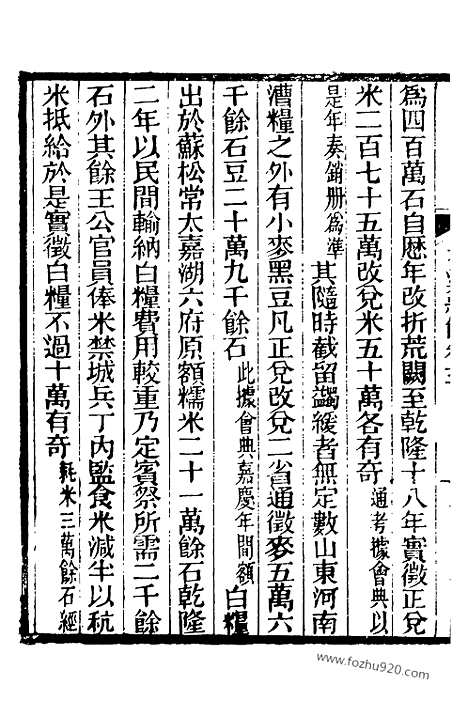 爲四百萬石自歷年改折荒闕至乾隆十八年實徵正兌
米二百七十五萬改兌米五十萬各有奇通考據會典以
是年奏銷册爲準其隨時截留蠲緩者無定數山東河南
漕糧之外有小麥黑豆凡正兌改兌二省通徵麥五萬六
千餘石豆二十萬九千餘石此據會典嘉慶年間額白糧
出於蘇松常太嘉湖六府原額糯米二十一萬餘石乾隆
二年以民間輸納白糧費用較重乃定賓祭所需二千餘
石外其餘王公官員俸米禁城兵丁內監食米減半以秔
米抵給於是實徵白糧不過十萬有奇耗米三萬餘石經
www.fozhu920.com